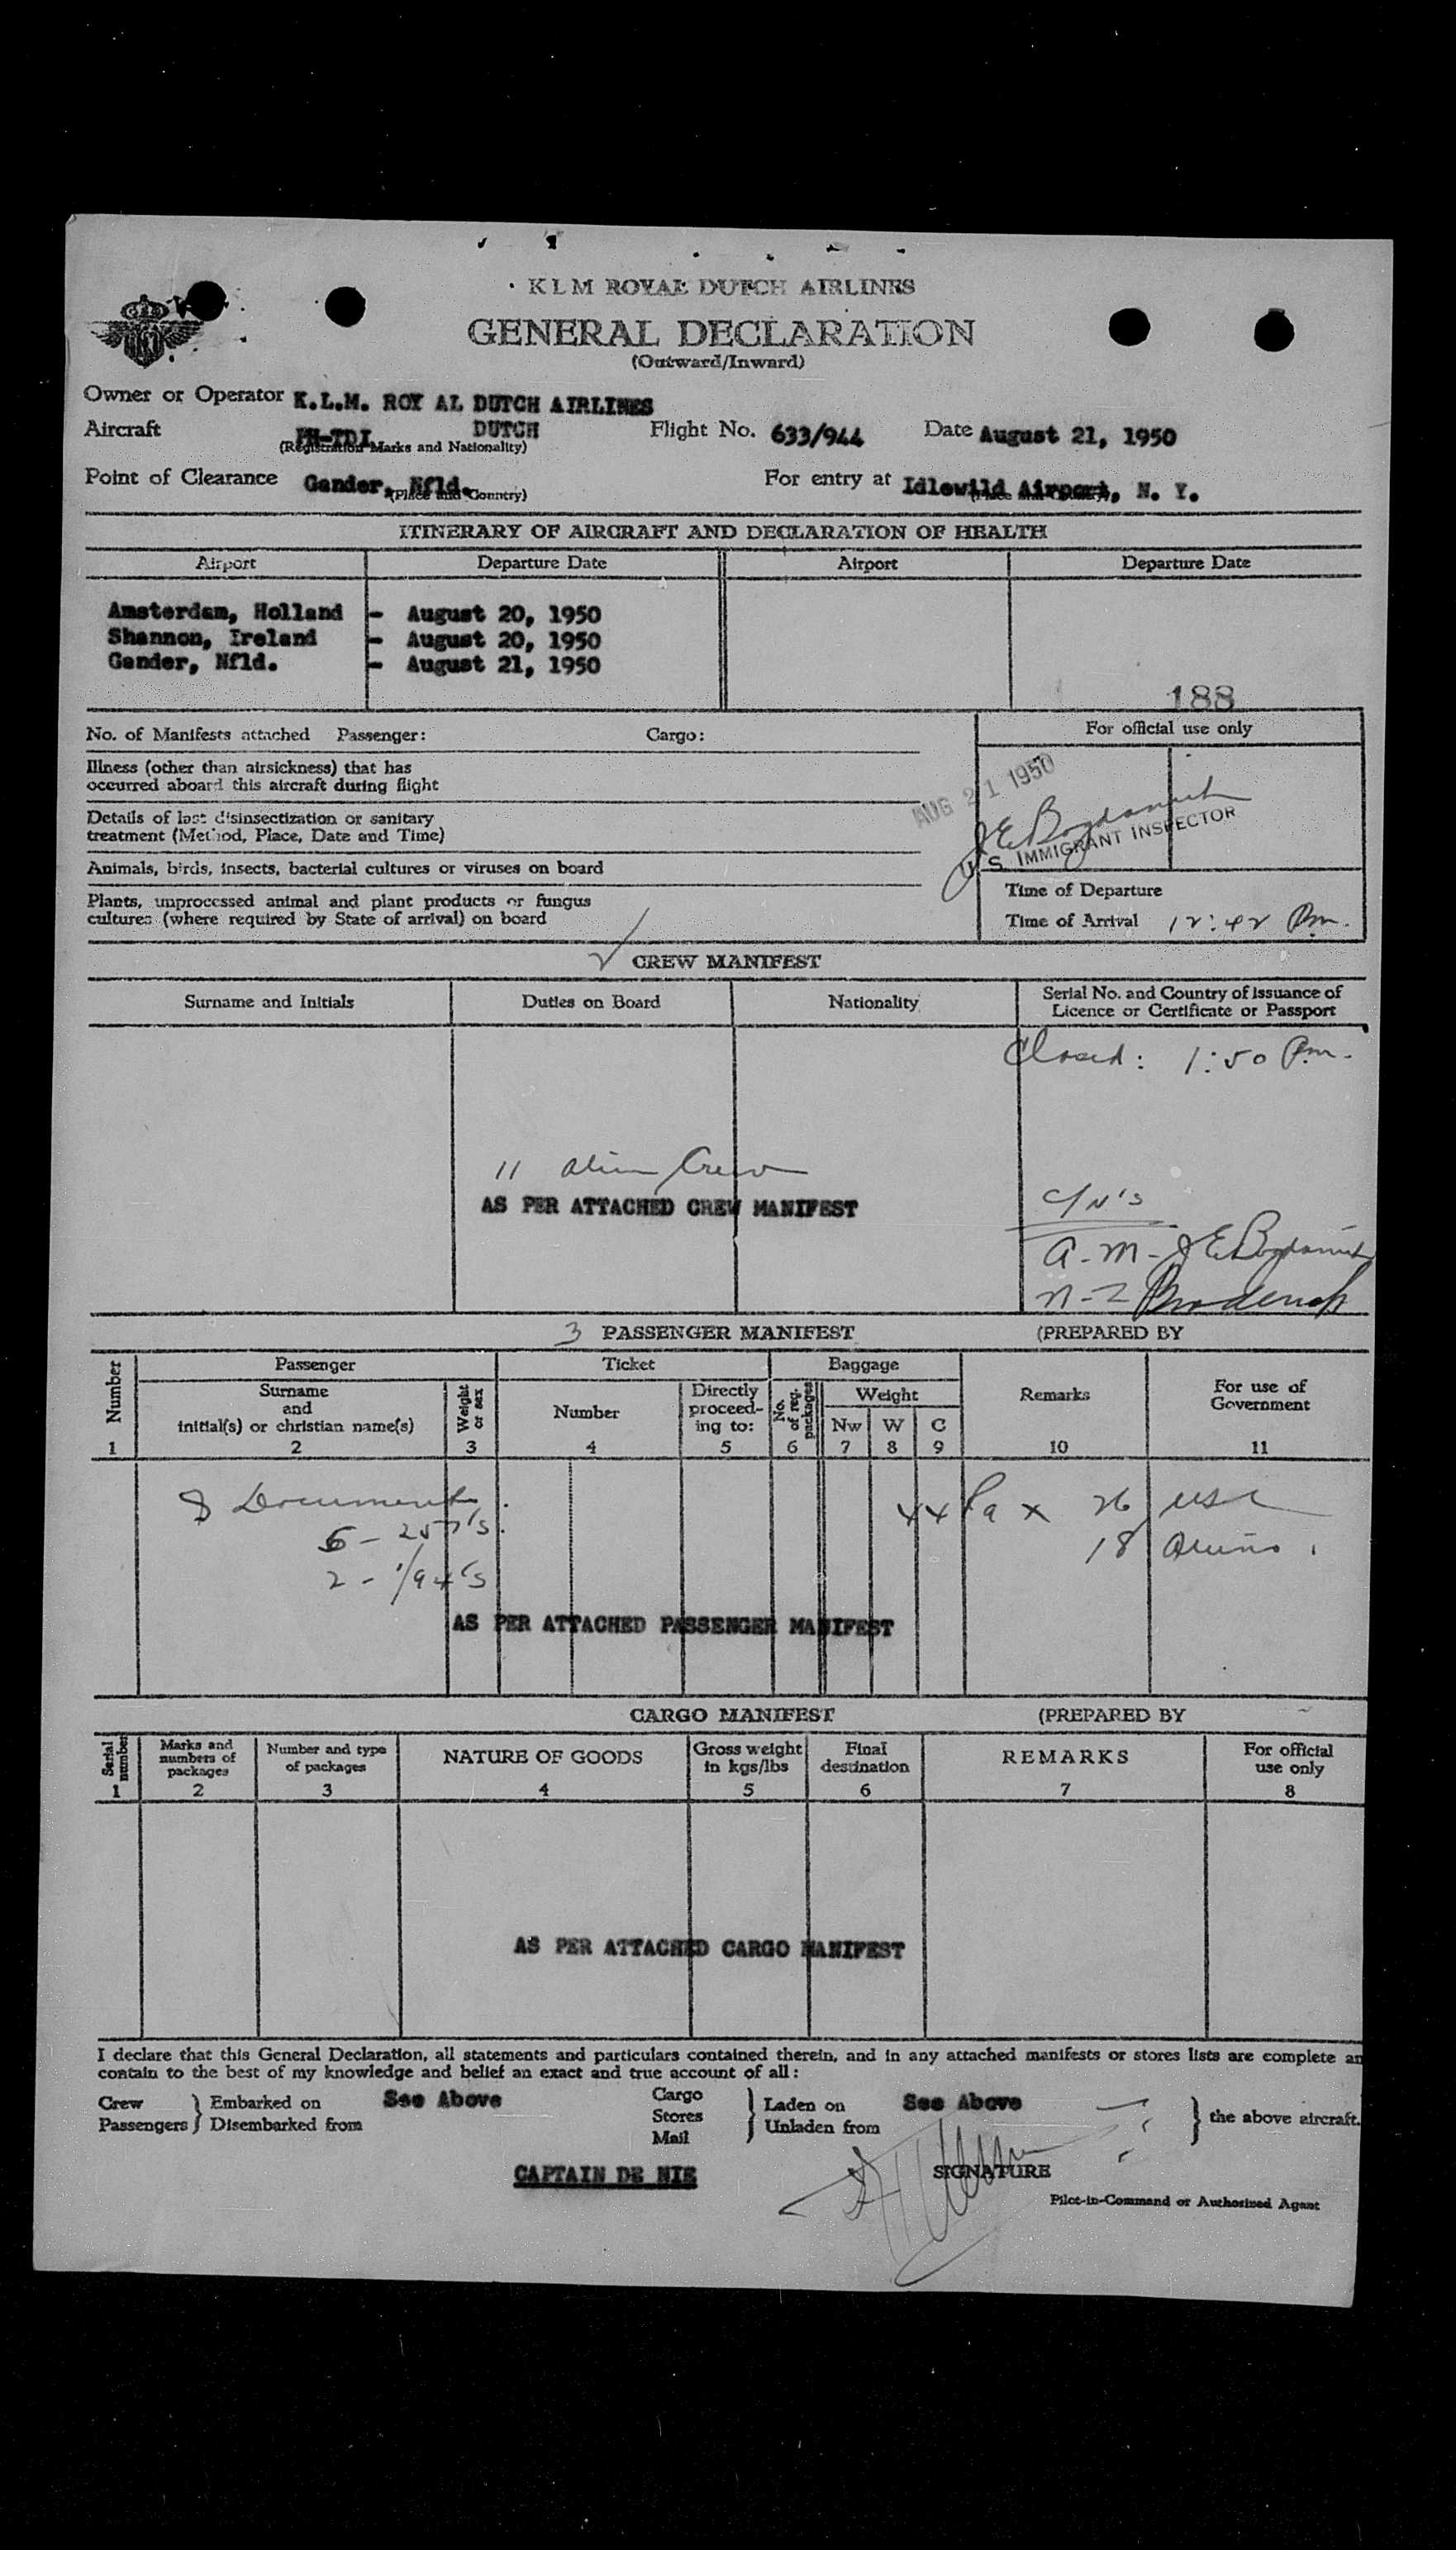 KLM ROYAL DUTCH AIRLINES
GENERAL DECLARATION
(Outward/Inward)
Owner or Operator K.L.M. ROY AL DUTCH AIRLINES
Aircraft PH-TDI DUTCH Flight No. 633/944 Date August 21, 1950
(Registration Marks and Nationality)
Point of Clearance Gander, Nfld. For entry at Idlewild Airport, N. Y.
(Place and Country)
ITINERARY OF AIRCRAFT AND DECLARATION OF HEALTH
Airport Departure Date Airport Departure Date
Amsterdam, Holland - August 20, 1950
Shannon, Ireland - August 20, 1950
Gander, Nfld. - August 21, 1950
188
No. of Manifests attached Passenger: Cargo: For official use only
Illness (other than airsickness) that has
occurred aboard this aircraft during flight
AUG 21 1950
Details of last disinsectization or sanitary
treatment (Method, Place, Date and Time)
U. S. IMMIGRANT INSPECTOR
Animals, birds, insects, bacterial cultures or viruses on board
Time of Departure
Plants, unprocessed animal and plant products or fungus
cultures (where required by State of arrival) on board
Time of Arrival 12:42 Pm.
CREW MANIFEST
Surname and Initials Duties on Board Nationality Serial No. and Country of issuance of
Licence or Certificate or Passport
Closed: 1:50 Pm.
11 alien Crew
AS PER ATTACHED CREW MANIFEST
C/N's
A-M- J E Bogdanich
N-Z Broderick
3 PASSENGER MANIFEST (PREPARED BY
Number Passenger Ticket Baggage Remarks For use of
Government
Surname
and
initial(s) or christian name(s) Weight or sex Number Directly
proceed-
ing to: No. of reg. packages Weight
Nw W C
1 2 3 4 5 6 7 8 9 10 11
8 Documents 44 Pax 26 USC
6 - 257's. 18 Aliens.
2 - 1/94's
AS PER ATTACHED PASSENGER MANIFEST
CARGO MANIFEST (PREPARED BY
Serial number Marks and
numbers of
packages Number and type
of packages NATURE OF GOODS Gross weight
in kgs/lbs Final
destination REMARKS For official
use only
1 2 3 4 5 6 7 8
AS PER ATTACHED CARGO MANIFEST
I declare that this General Declaration, all statements and particulars contained therein, and in any attached manifests or stores lists are complete an
contain to the best of my knowledge and belief an exact and true account of all:
Crew
Passengers } Embarked on See Above
Disembarked from
Cargo
Stores
Mail } Laden on See Above
Unladen from } the above aircraft.
CAPTAIN DE NIE SIGNATURE
Pilot-in-Command or Authorized Agent